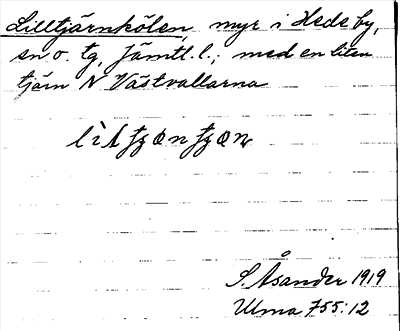 Lilltjärnkölen, myr i Hede by,
sn o. tg, Jämtl. l.; med en liten
tjärn N Västvallarna
S. Åsander 1919
Ulma 755:12